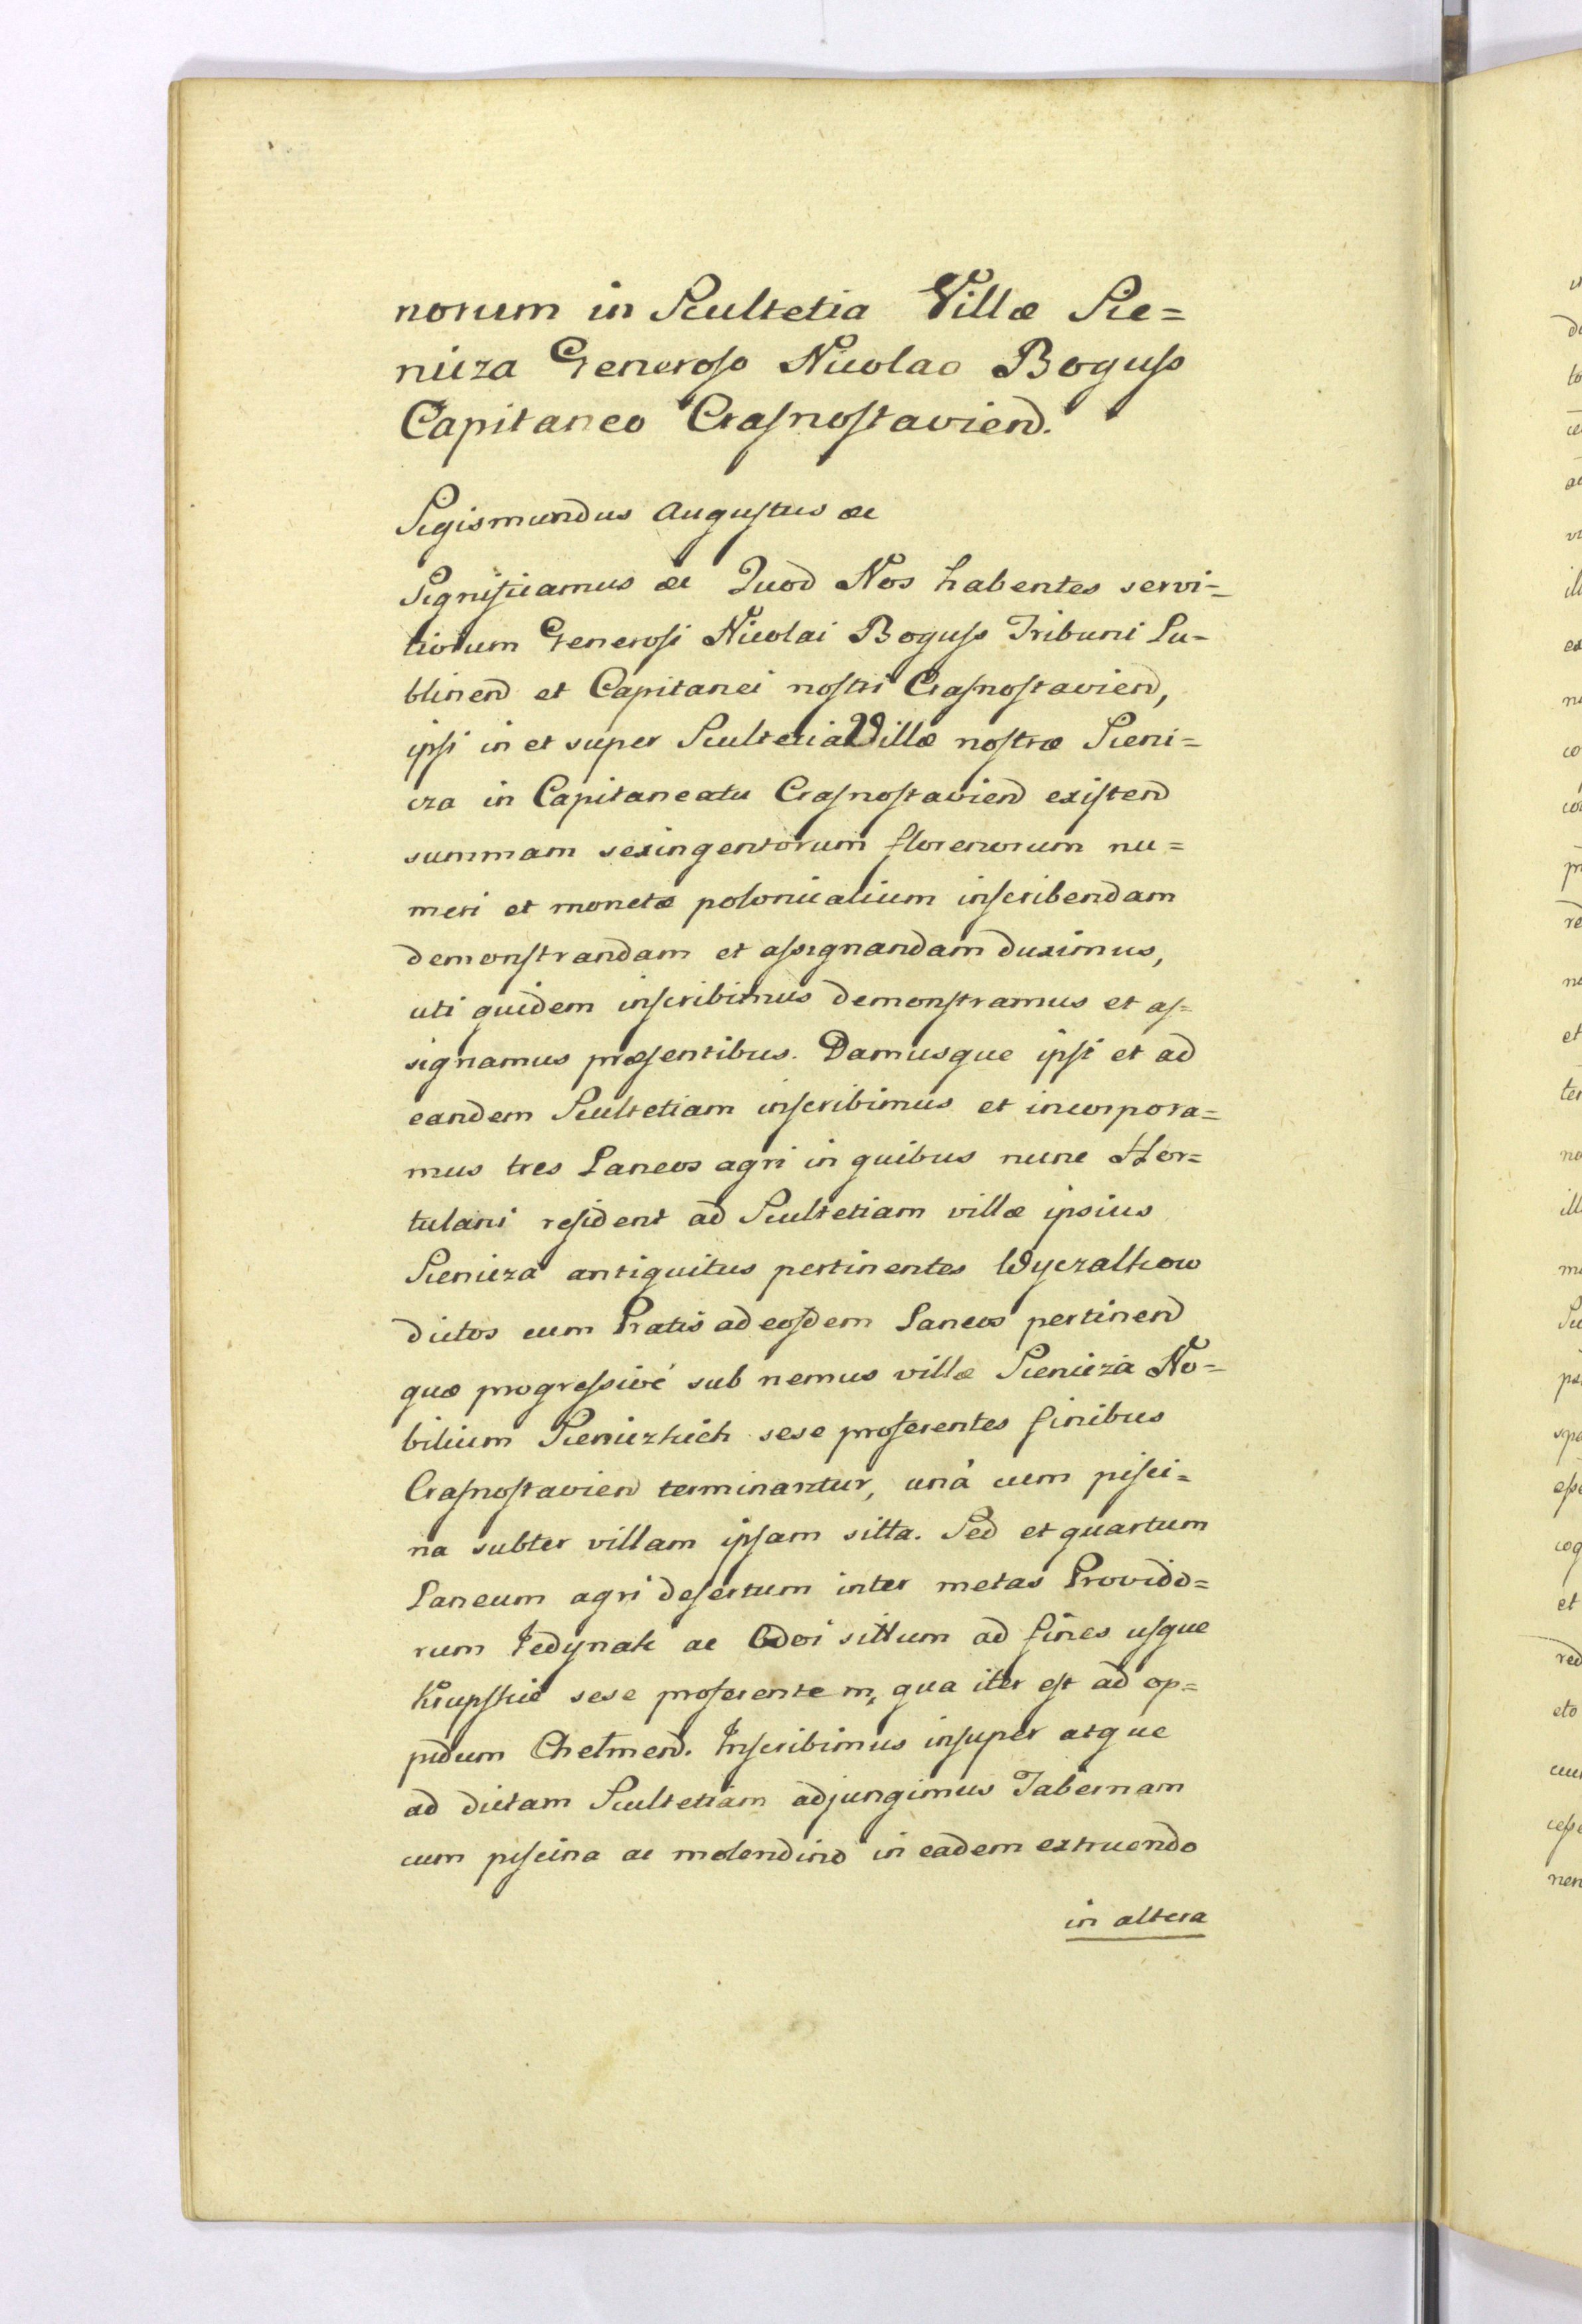 norum in Scultetia Villæ Sie=
nicza Generoso Nicolao Boguss
Capitaneo Crasnostaviend.
Sigismundus Augustus &c
Significamus &c Quod Nos habentes servi=
tiorum Generosi Nicolai Boguss Tribuni Lu=
blinend et Capitanei nostri Crasnostaviend,
ipsi in et super Scultetia Villæ nostræ Sieni=
cza in Capitaneatu Crasnostaviend existend
summam sexingentorum florenorum nu=
meri et monetæ polonicalium inscribendam
demonstrandam et assignandam duximus,
uti quidem inscribimus demonstramus et as=
signamus præsentibus. Damusque ipsi et ad
eandem Scultetiam inscribimus et incorpora=
mus tres Laneos agri in quibus nunc Hor=
tulani resident ad Scultetiam villæ ipsius
Sienicza antiquitus pertinentes Wyczalkow
dictos cum Pratis ad eosdem Laneos pertinend
quæ progressivé sub nemus villæ Sienicza No=
bilium Sieniczkich sese proferentes finibus
Crasnostaviend terminantur, unà cum pisci=
na subter villam ipsam sitta. Sed et quartum
Laneum agri desertum inter metas Provido=
rum Jedynak ac Odoi sittum ad fines usque
Krupskie sese proferentem, qua iter est ad op=
pidum Chełmend. Inscribimus insuper atque
ad dictam Scultetiam adjungimus Tabernam
cum piscina ac molendino in eadem extruendo
in altera